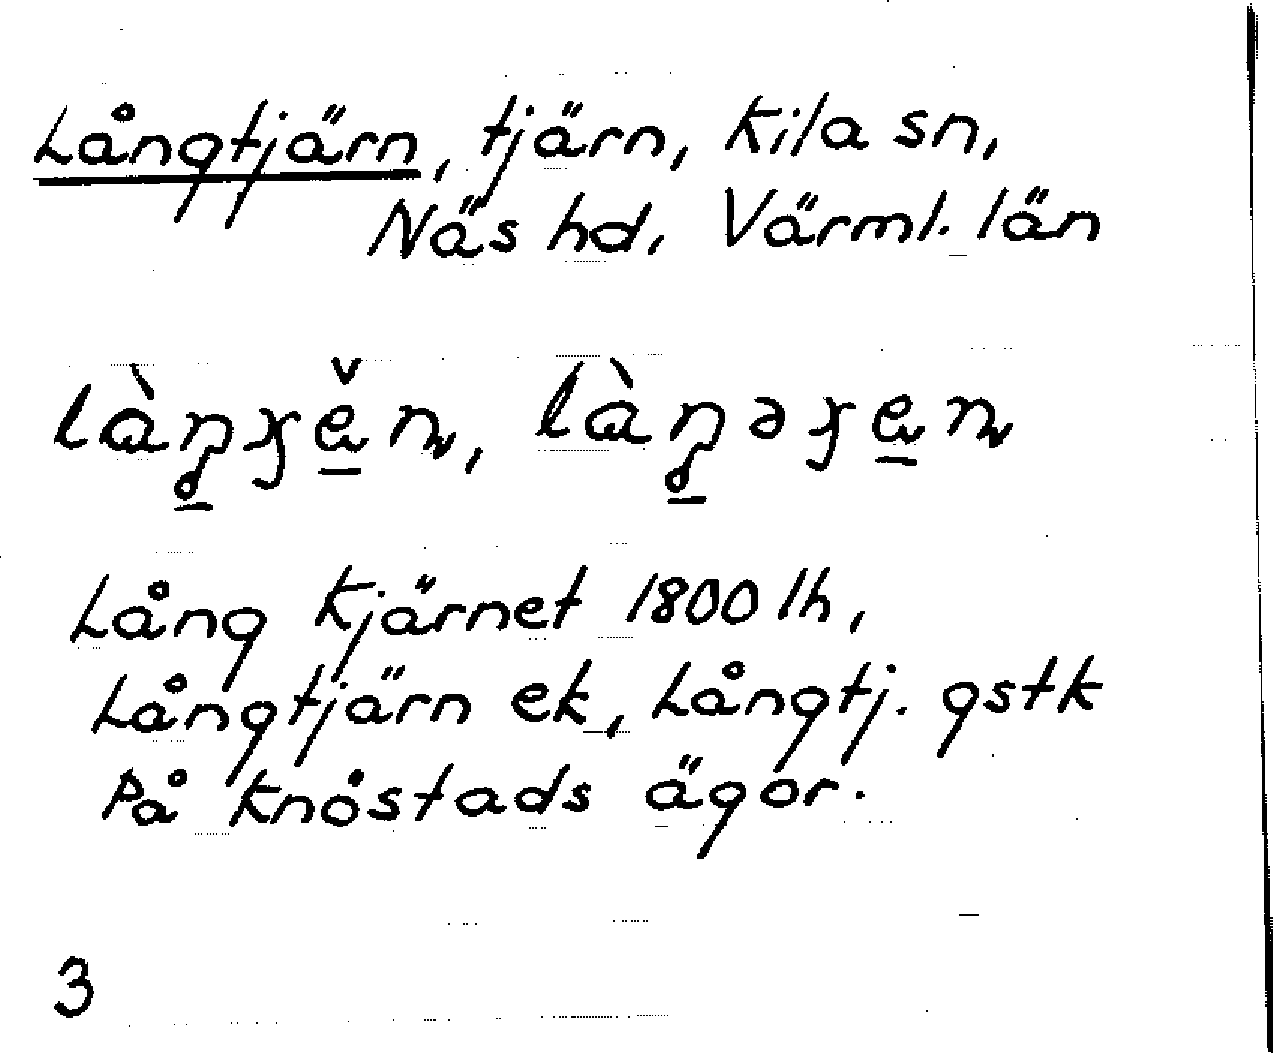 Långtjärn, tjärn, Kila sn,
Näs hd, Värml. län
Lång Kjärnet 1800 lh,
Långtjärn ek, Långtj. gstk
På Knöstads ägor.
3